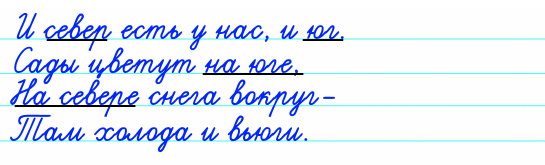 И север есть у нас, и юг.
Сады цветут на юге,
На севере снега вокруг –
Там холода и вьюги.